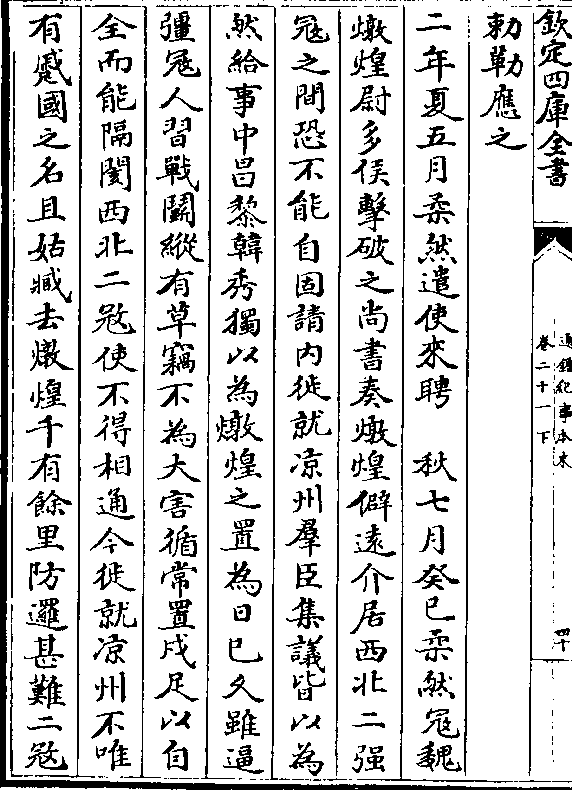 欽定四庫全書
通鑑紀事本末
卷二十一下
四十
勅勒應之
二年夏五月柔然遣使來聘　秋七月癸巳柔然冦魏
燉煌尉多侯擊破之尚書奏燉煌僻遠介居西北二强
冦之間恐不能自固請内徙就凉州羣臣集議皆以為
然給事中昌黎韓秀獨以為燉煌之置為日已久雖逼
彊冦人習戰鬭縱有草竊不為大害循常置戍足以自
全而能隔閡西北二冦使不得相通今徙就凉州不唯
有蹙國之名且姑臧去燉煌千有餘里防邏甚難二冦